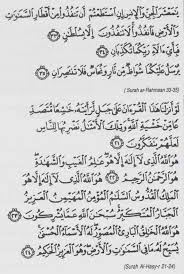 يَٰمَعْشَرَ ٱلْجِنِّ وَٱلْإِنسِ إِنِ ٱسْتَطَعْتُمْ أَن تَنفُذُوا۟ مِنْ أَقْطَارِ ٱلسَّمَٰوَٰتِ
وَٱلْأَرْضِ فَٱنفُذُوا۟ لَا تَنفُذُونَ إِلَّا بِسُلْطَٰنٍ ٣٣
فَبِأَىِّ ءَالَآءِ رَبِّكُمَا تُكَذِّبَانِ ٣٤
يُرْسَلُ عَلَيْكُمَا شُوَاظٌ مِّن نَّارٍ وَنُحَاسٌ فَلَا تَنتَصِرَانِ ٣٥
( Surah ar-Rahmaan 33-35)
لَوْ أَنزَلْنَا هَٰذَا ٱلْقُرْءَانَ عَلَىٰ جَبَلٍ لَّرَأَيْتَهُۥ خَٰشِعًا مُّتَصَدِّعًا
مِّنْ خَشْيَةِ ٱللَّهِ وَتِلْكَ ٱلْأَمْثَٰلُ نَضْرِبُهَا لِلنَّاسِ
لَعَلَّهُمْ يَتَفَكَّرُونَ ٢١ هُوَ ٱللَّهُ ٱلَّذِى لَآ إِلَٰهَ إِلَّا هُوَ عَٰلِمُ ٱلْغَيْبِ وَٱلشَّهَٰدَةِ
هُوَ ٱلرَّحْمَٰنُ ٱلرَّحِيمُ ٢٢ هُوَ ٱللَّهُ ٱلَّذِى لَآ إِلَٰهَ إِلَّا هُوَ
ٱلْمَلِكُ ٱلْقُدُّوسُ ٱلسَّلَٰمُ ٱلْمُؤْمِنُ ٱلْمُهَيْمِنُ
ٱلْعَزِيزُ ٱلْجَبَّارُ ٱلْمُتَكَبِّرُ سُبْحَٰنَ ٱللَّهِ عَمَّا يُشْرِكُونَ ٢٣
هُوَ ٱللَّهُ ٱلْخَٰلِقُ ٱلْبَارِئُ ٱلْمُصَوِّرُ لَهُ ٱلْأَسْمَآءُ ٱلْحُسْنَىٰ
يُسَبِّحُ لَهُۥ مَا فِى ٱلسَّمَٰوَٰتِ وَٱلْأَرْضِ وَهُوَ ٱلْعَزِيزُ ٱلْحَكِيمُ ٢٤
(Surah Al-Hasy-r 21-24)